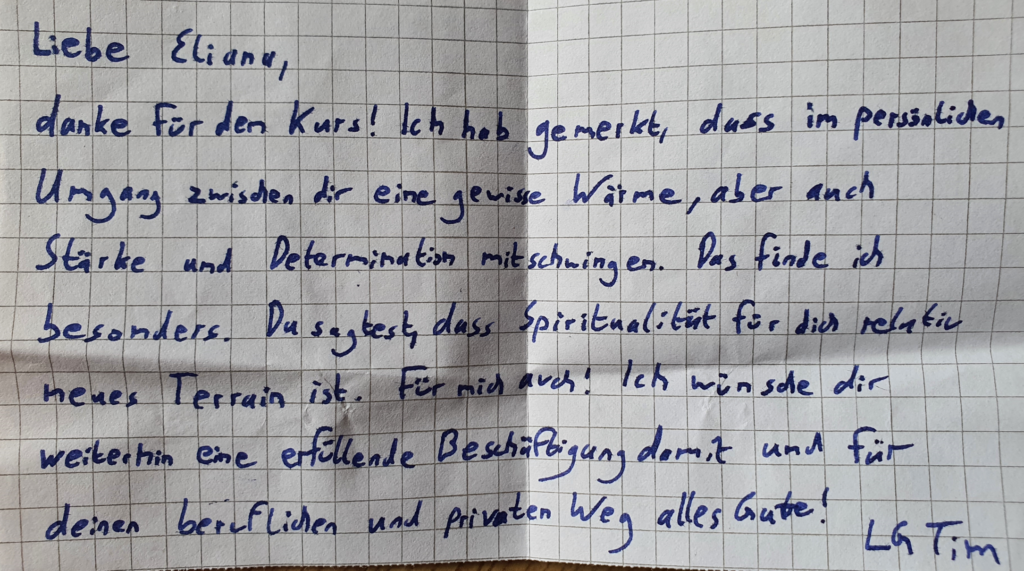 Liebe Eliana,
danke für den Kurs! Ich hab gemerkt, dass im persönlichen
Umgang zwischen dir eine gewisse Wärme, aber auch
Stärke und Determination mitschwingen. Das finde ich
besonders. Du sagtest, dass Spiritualität für dich relativ
neues Terrain ist. Für mich auch! Ich wünsche dir
weiterhin eine erfüllende Beschäftigung damit und für
deinen beruflichen und privaten Weg alles Gute!
LG Tim